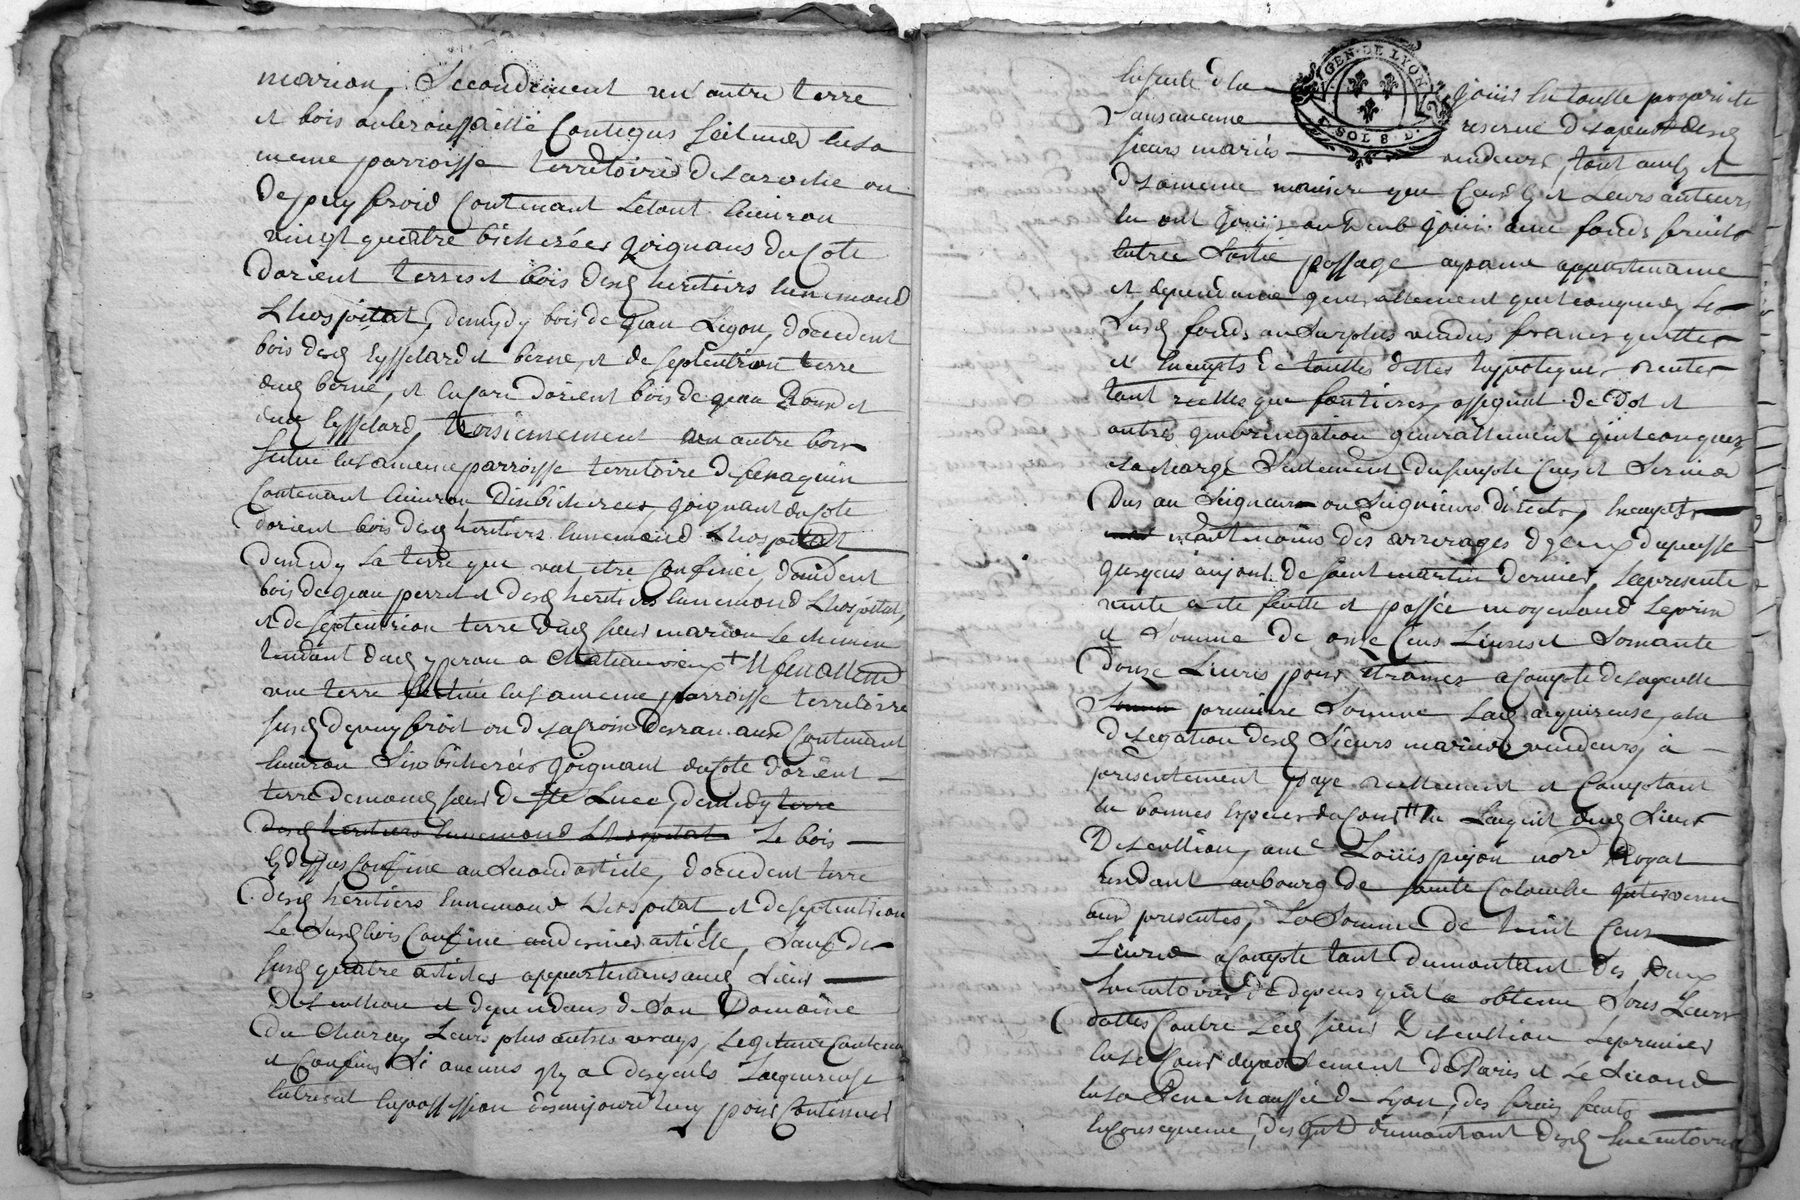 marion, Secondement un autre terre
et bois aubroussaille Contigus scitues en la
meme parroisse territoire de laroche ou
de puy froid Contenant le tout environ
vingt quattre bicherées joignans du Cote
dorient terres et bois desd heritiers ennemond
Lhospital, demydy bois de jean Ligon, doccident
bois desd eysselard et berne, et de septentrion terre
dud berne, et encore dorient bois de jean et
dud eysselard, troisiemement un autre bois
scitue en la meme parroisse territoire de
Contenant environ dix bicherees, joignant du cote
dorient bois desd heritiers ennemond Lhospital
demidy la terre que vat etre Confinée, doccident
bois de jean perret et desd heritiers ennemond Lhospital,
et de septentrion terre dud sieur marion le chemin
tendant a Chateauvieux + et finallement
une terre scittuée en la meme parroisse territoire
susd de puy froit ou de la Croix Contenant
environ Six bicherées joignant du cote dorient
terre de sieur de Ste Luce, demidy terre
desd heritiers ennemond Lhospital Le bois
cy dessus Confine au second article, doccident terre
desd heritiers ennemond Lhospital et de septentrion
Le susd bois Confine au dernier article, Sauf des
susd quatre articles appartenans aud Sieur
et dependans de Son Domaine
du Leurs plus autres vrays, Legitimes Contenus
et Confins Si aucuns y a desquels Lacquereuse
entrera en possession desaujourdhuy pour Continuer
ensuite de la jouir en toutte propriete
Sans aucune reserve de la part desd
sieurs mariés vendeurs, tout ainsy et
de la meme maniere que Ceux cy et Leurs auteurs
en ont joüis ou deub jouir avec fonds fruits
entrée Sortie passage aysance appartenance
et dependance generallement quelconques, Les
Susd fonds au Surplus vendus francs quittes
et Exempts de touttes dettes hypoteques rentes
tant reelles que fontieres, assignat de Dot et
autres generallement quelconques,
a la charge Seulement du simple Cens et Servis
Dus au Seigneur ou Seigneurs directs, Exempts
neantmoins des arrerages dyceux du passé
jusques aujourd. de saint martin dernier, La presente
vente a ete faitte et passée moyennant Le prix
et Somme de onze Cens Livres et Soixante
douze Livres pour étraines a Compte de laquelle
premiere Somme Lad acquereuse, a la
delegation desd Sieurs mariés vendeurs, a
présentement payé reellement et Comptant
en bonnes Especes du Cours
ame Loüis pijon nore Royal
residant au bourg de sainte Colombe jntervenu
aux presentes, La Somme de huit Cens
Livres a Compte tant du montant des deux
Executoires de depens quil a obtenu Sous Leurs
dattes Contre Led sieur Le premier
en la Cour de parlement de Paris et Le Second
en la Senechaussée de Lyon, des frais faits
en Consequence, des jnt du montant desd Executoires
GEN. DE LYON
2. SOLS 8. D.